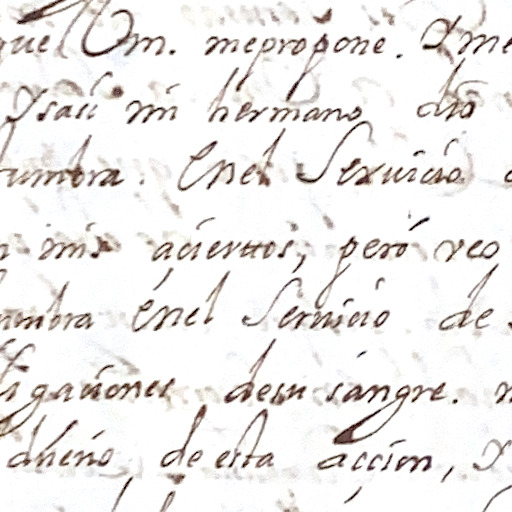 que Vm. mepropone. Y me
Ysau mi hermano dio
tumbra. Enel Servicio
mis açiertos, peró veo
tumbra énel Servicio de
ligaciones desu sangre.
dueño de esta acçion, Y